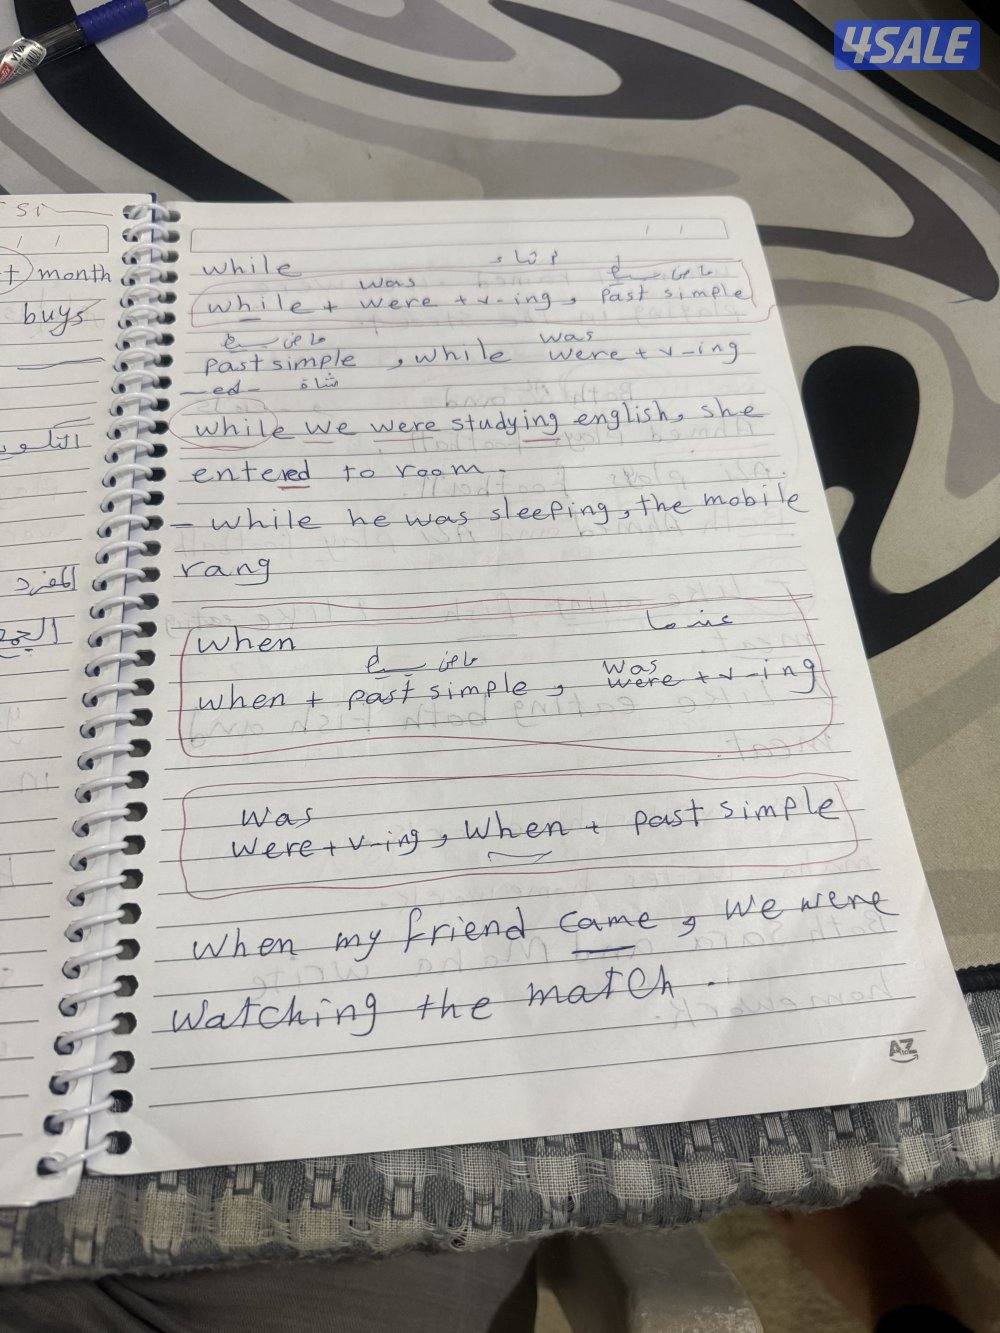 4SALE
month
buys
المفرد
while
was
ماضي بسيط
while + were + v-ing, past simple
ماضي بسيط
was
past simple , while were + v-ing
-ed-
while we were studying english, she
entered to room.
- while he was sleeping, the mobile
rang
when
عندما
ماضي بسيط
was
when + past simple , were + v-ing
was
were + v-ing, when + past simple
when my friend came , we were
watching the match.
AZ